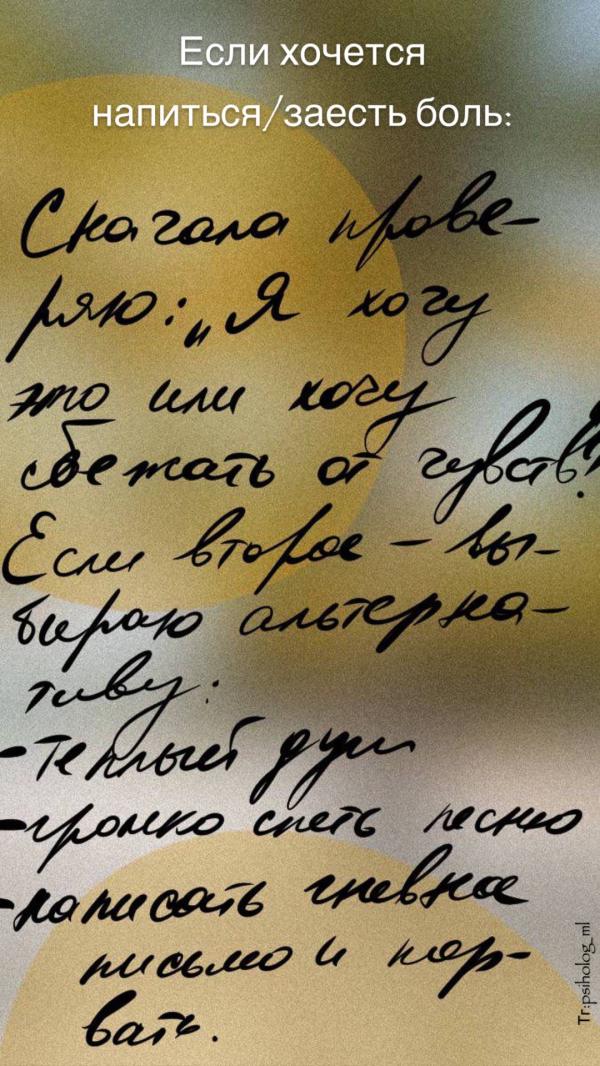 Если хочется
напиться/заесть боль:
Сначала прове-
ряю: „Я хочу
это или хочу
сбежать от чувств?"
Если второе – вы-
бираю альтерна-
тиву:
-теплый душ
-громко спеть песню
-написать гневное
письмо и пор-
вать.
Tr:psiholog_ml